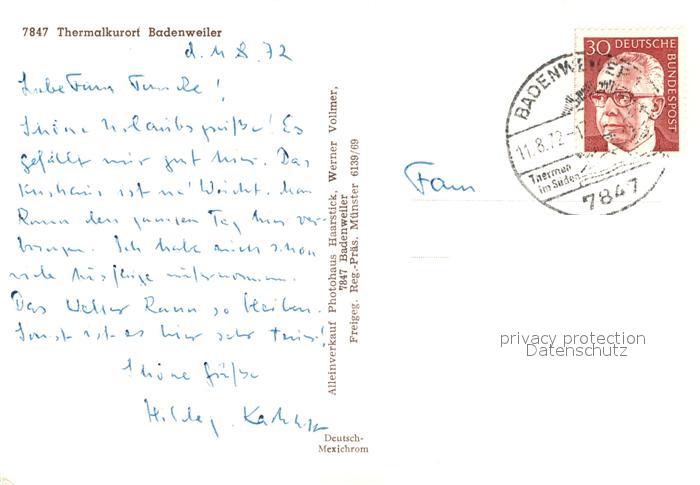 7847 Thermalkurort Badenweiler
d. 11. 8. 72
Liebe Frau
Schöne Urlaubsgrüße! Es
gefällt mir gut hier. Das
Kurhaus ist ne' Wucht. Man
kann den ganzen Tag hier ver-
bringen. Ich habe mich schon
viele Ausflüge
Das Wetter kann so bleiben.
Sonst ist es hier sehr teuer!
Schöne Grüße
Alleinverkauf Photohaus Haarstick, Werner Vollmer,
7847 Badenweiler
Freigeg. Reg.-Präs. Münster 6139/69
Deutsch-
Mexichrom
30 DEUTSCHE
BUNDESPOST
BADENWEILER
11.8.72
Thermen
im Süden
7847
Fam
privacy protection
Datenschutz